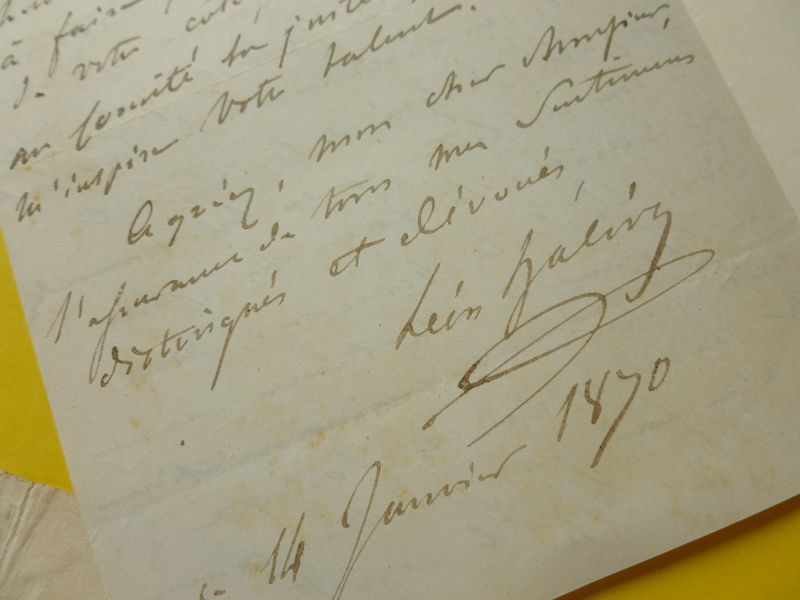 à faire
de votre côté,
au Comité la juste
m'inspire votre talent.
Agréez, mon cher Monsieur,
l'assurance de tous mes Sentiments
distingués et dévoués,
Léon Halévy
14 Janvier 1870